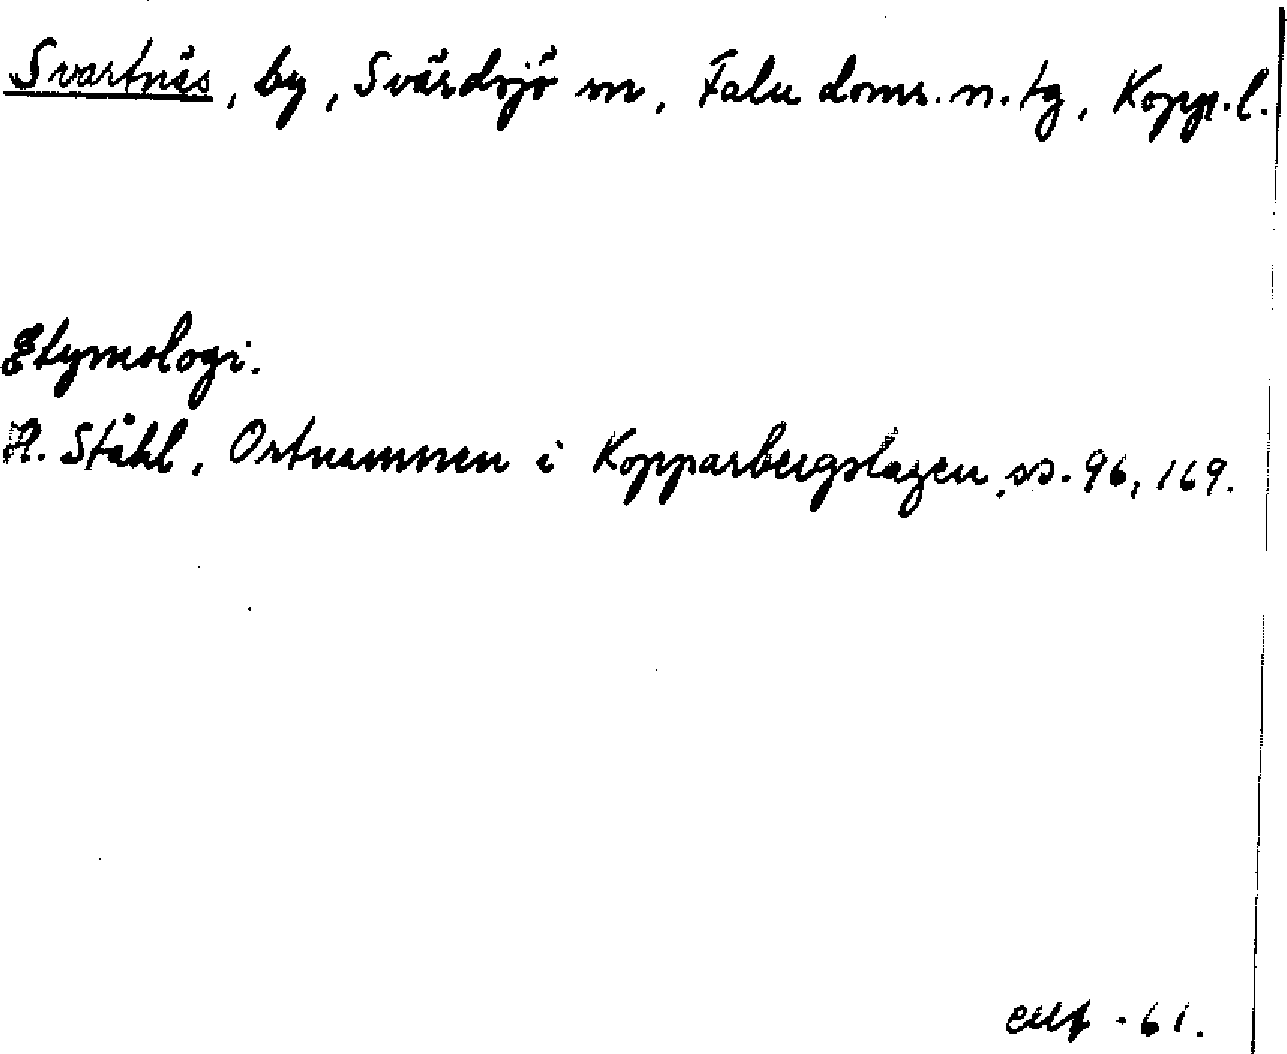 Svartnäs, by, Svärdsjö sn, Falu doms. n. tg, Kopp. l.
Etymologi.
H. Ståhl, Ortnamnen i Kopparbergslagen, ss. 96, 169.
-61.